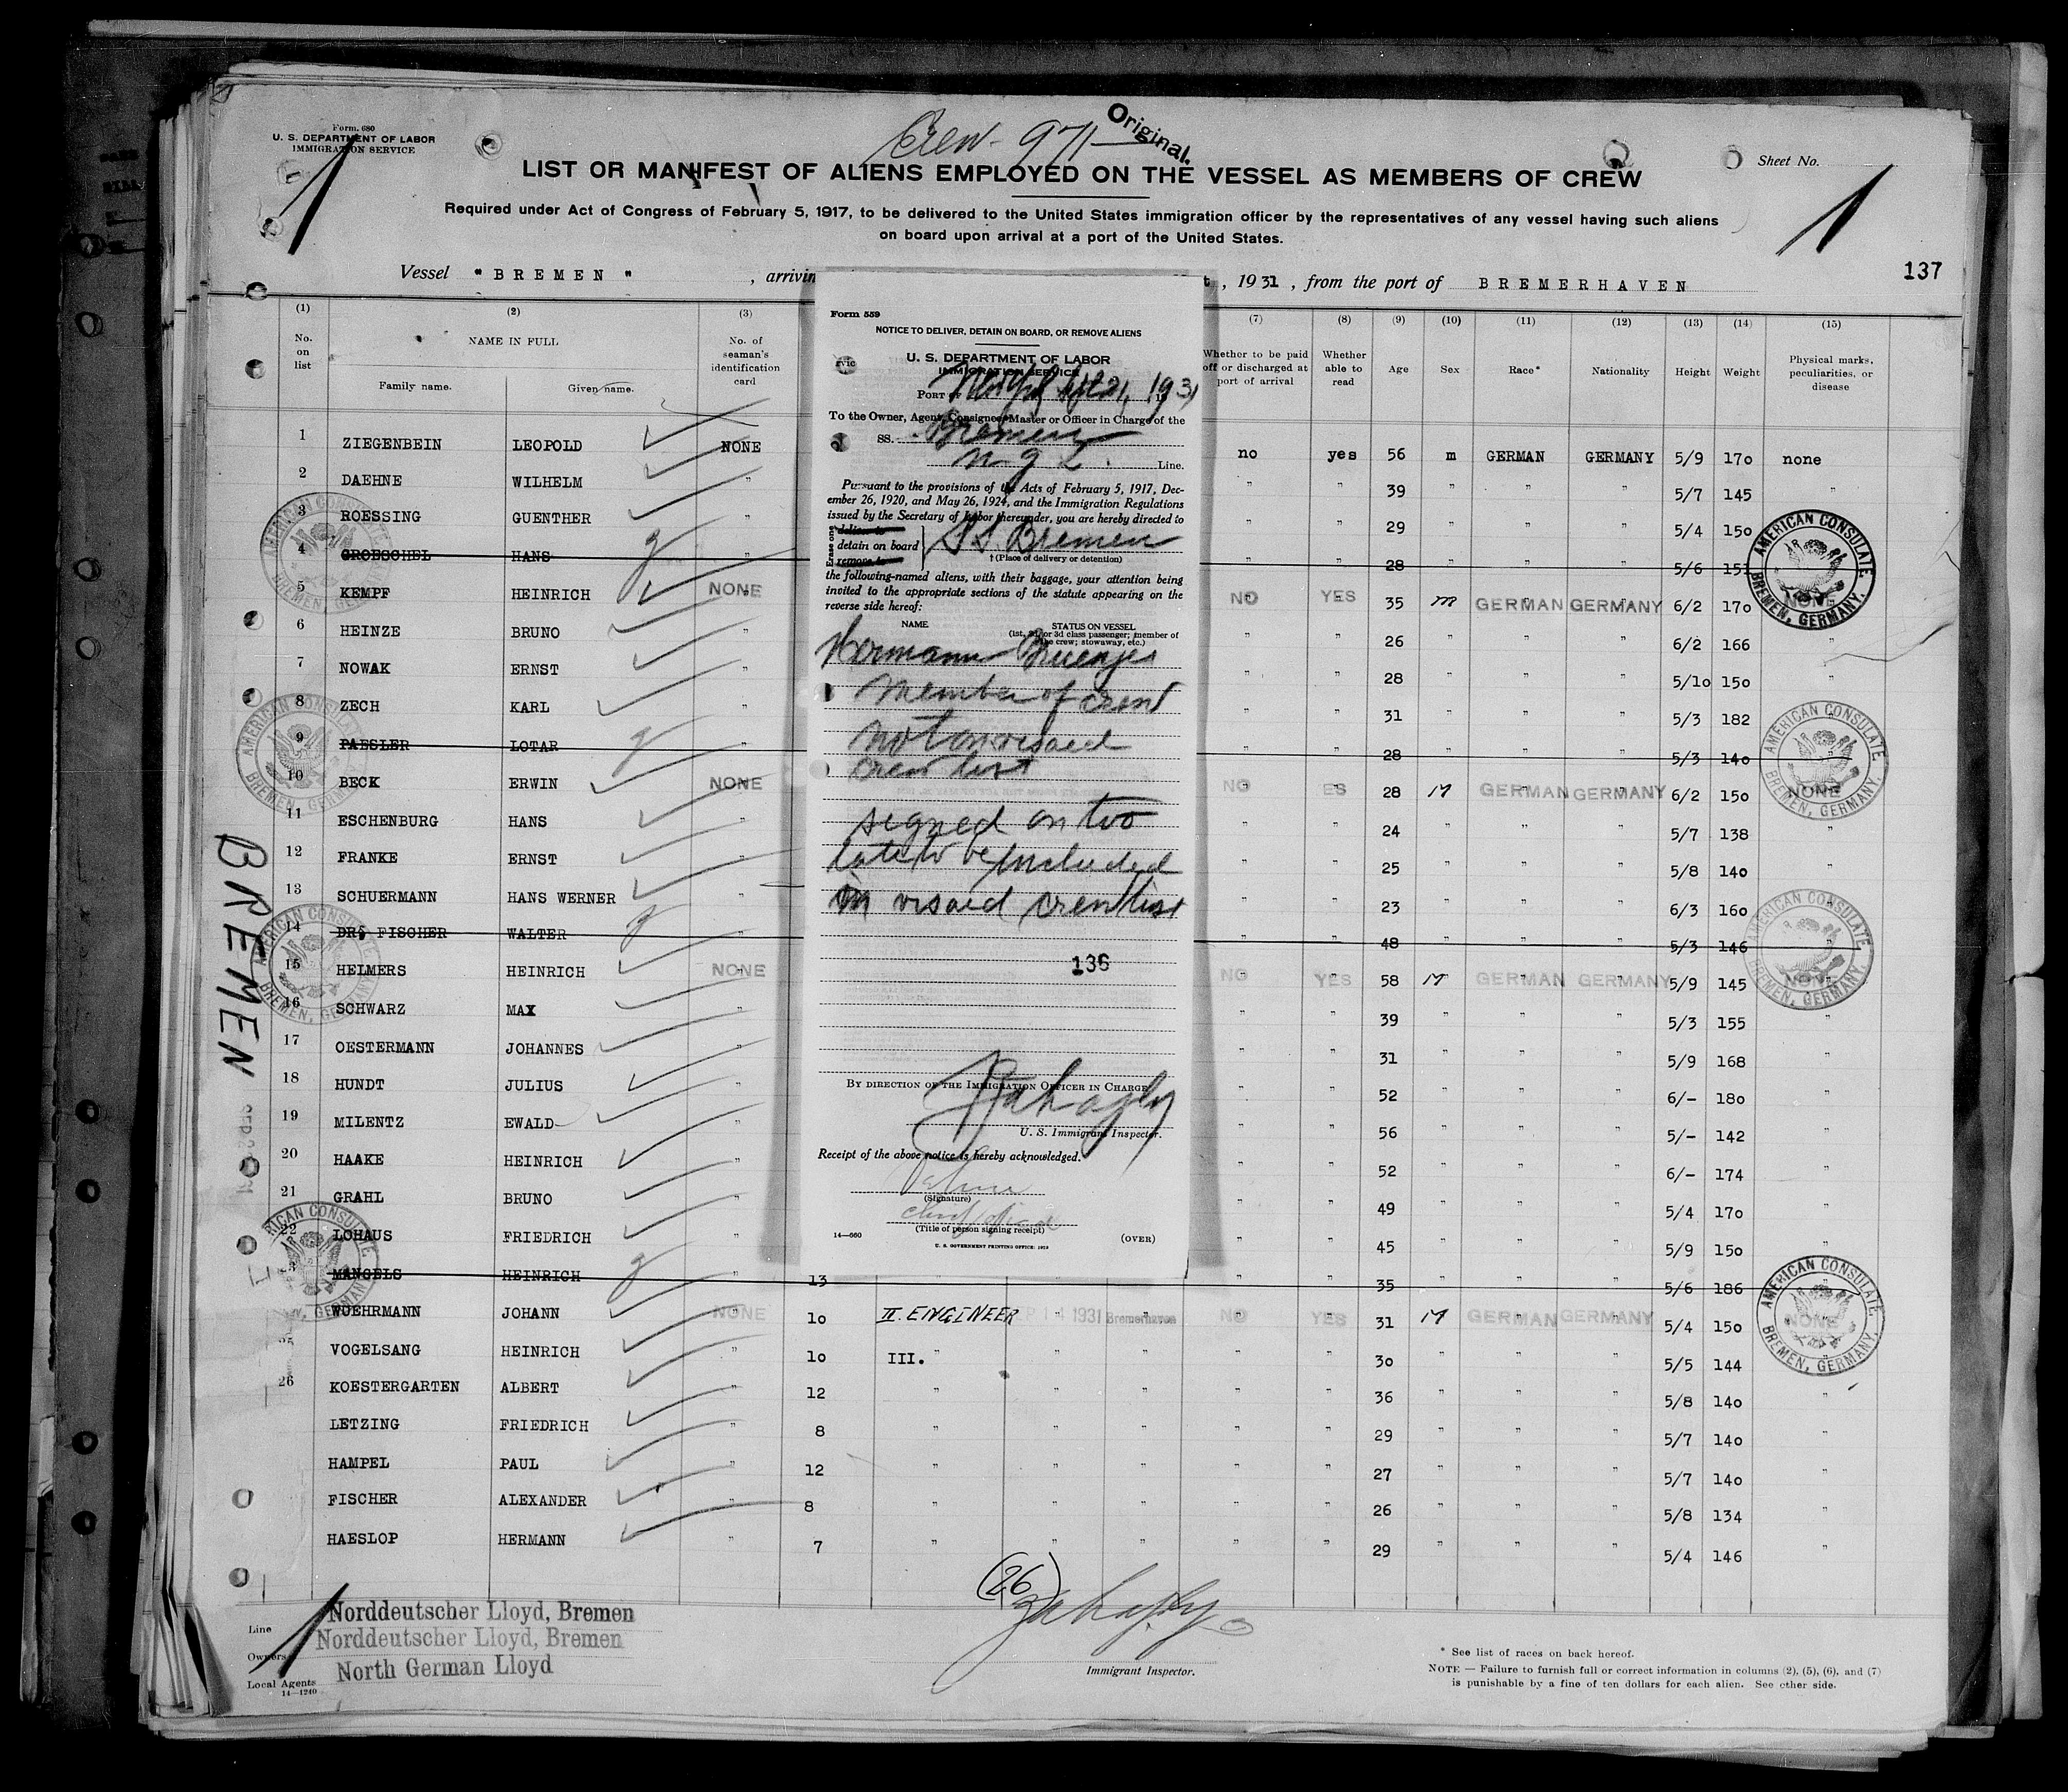 Form. 680
U. S. DEPARTMENT OF LABOR
IMMIGRATION SERVICE
Crew - 971
Original.
Sheet No.
LIST OR MANIFEST OF ALIENS EMPLOYED ON THE VESSEL AS MEMBERS OF CREW
Required under Act of Congress of February 5, 1917, to be delivered to the United States immigration officer by the representatives of any vessel having such aliens
on board upon arrival at a port of the United States.
1
1
137
Vessel "BREMEN" , arrivin t , 1931 , from the port of BREMERHAVEN
(1) (2) (3) (7) (8) (9) (10) (11) (12) (13) (14) (15)
No. on list NAME IN FULL Family name. Given name. No. of seaman's identification card Whether to be paid off or discharged at port of arrival Whether able to read Age Sex Race* Nationality Height Weight Physical marks, peculiarities, or disease
1 ZIEGENBEIN LEOPOLD NONE no yes 56 m GERMAN GERMANY 5/9 170 none
2 DAEHNE WILHELM " " " 39 " " " 5/7 145 "
3 ROESSING GUENTHER " " " 29 " " " 5/4 150
4 GROESCHEL HANS " " " 28 " " " 5/6 151
5 KEMPF HEINRICH NONE NO YES 35 m GERMAN GERMANY 6/2 170 NONE
6 HEINZE BRUNO " " " 26 " " " 6/2 166 "
7 NOWAK ERNST " " " 28 " " " 5/10 150 "
8 ZECH KARL " " " 31 " " " 5/3 182 "
9 PAESLER LOTAR " " " 28 " " " 5/3 140
10 BECK ERWIN NONE NO ES 28 M GERMAN GERMANY 6/2 150 NONE
11 ESCHENBURG HANS " " " 24 " " " 5/7 138 "
12 FRANKE ERNST " " " 25 " " " 5/8 140 "
13 SCHUERMANN HANS WERNER " " " 23 " " " 6/3 160 "
14 DR. FISCHER WALTER " " " 48 " " " 5/3 146 "
15 HELMERS HEINRICH NONE NO YES 58 M GERMAN GERMANY 5/9 145 NONE
16 SCHWARZ MAX " " " 39 " " " 5/3 155 "
17 OESTERMANN JOHANNES " " " 31 " " " 5/9 168 "
18 HUNDT JULIUS " " " 52 " " " 6/- 180 "
19 MILENTZ EWALD " " " 56 " " " 5/- 142 "
20 HAAKE HEINRICH " " " 52 " " " 6/- 174 "
21 GRAHL BRUNO " " " 49 " " " 5/4 170 "
22 LOHAUS FRIEDRICH " " " 45 " " " 5/9 150 "
MANGELS HEINRICH " 13 " " 35 " " " 5/6 186 "
WUEHRMANN JOHANN NONE 10 II. ENGINEER 1931 Bremerhaven NO YES 31 M GERMAN GERMANY 5/4 150 NONE
VOGELSANG HEINRICH " 10 III. " " " " " 30 " " " 5/5 144 "
26 KOESTERGARTEN ALBERT " 12 " " " " " 36 " " " 5/8 140 "
LETZING FRIEDRICH " 8 " " " " " 29 " " " 5/7 140 "
HAMPEL PAUL " 12 " " " " " 27 " " " 5/7 140 "
FISCHER ALEXANDER " 8 " " " " " 26 " " " 5/8 134 "
HAESLOP HERMANN " 7 " " " " " 29 " " " 5/4 146 "
Form 559
NOTICE TO DELIVER, DETAIN ON BOARD, OR REMOVE ALIENS
U. S. DEPARTMENT OF LABOR
IMMIGRATION SERVICE
PORT OF New York Sept 21, 1931
To the Owner, Agent, Consignee, Master or Officer in Charge of the
SS. Bremen
N G L. Line.
Pursuant to the provisions of the Acts of February 5, 1917, Dec-
ember 26, 1920, and May 26, 1924, and the Immigration Regulations
issued by the Secretary of Labor thereunder, you are hereby directed to
Erase one
deliver to
detain on board
remove to
SS Bremen
† (Place of delivery or detention)
the following-named aliens, with their baggage, your attention being
invited to the appropriate sections of the statute appearing on the
reverse side hereof:
NAME STATUS ON VESSEL
(1st, 2d, or 3d class passenger; member of
the crew; stowaway, etc.)
Hermann
Member of crew
Not on visaed
crew list
signed on too
late to be included
in visaed crew list
136
BY DIRECTION OF THE IMMIGRATION OFFICER IN CHARGE
U. S. Immigrant Inspector.
Receipt of the above notice is hereby acknowledged.
(Signature)
Chief officer
(Title of person signing receipt)
14—660
U. S. GOVERNMENT PRINTING OFFICE: 1929
(OVER)
BREMEN
AMERICAN CONSULATE
BREMEN, GERMANY.
AMERICAN CONSULATE
BREMEN, GERMANY.
AMERICAN CONSULATE
BREMEN, GERMANY.
AMERICAN CONSULATE
BREMEN, GERMANY.
(26)
Immigrant Inspector.
Line Norddeutscher Lloyd, Bremen
Owners Norddeutscher Lloyd, Bremen
Local Agents North German Lloyd
14—1240
* See list of races on back hereof.
NOTE — Failure to furnish full or correct information in columns (2), (5), (6), and (7)
is punishable by a fine of ten dollars for each alien. See other side.